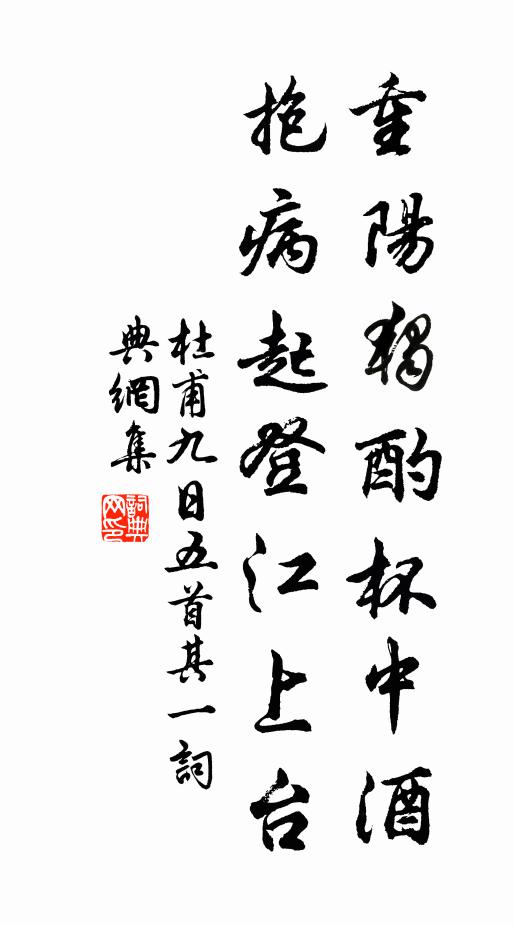 重陽獨酌杯中酒
抱病起登江上台
杜甫九日五首其一詞
典網集
詞典网印